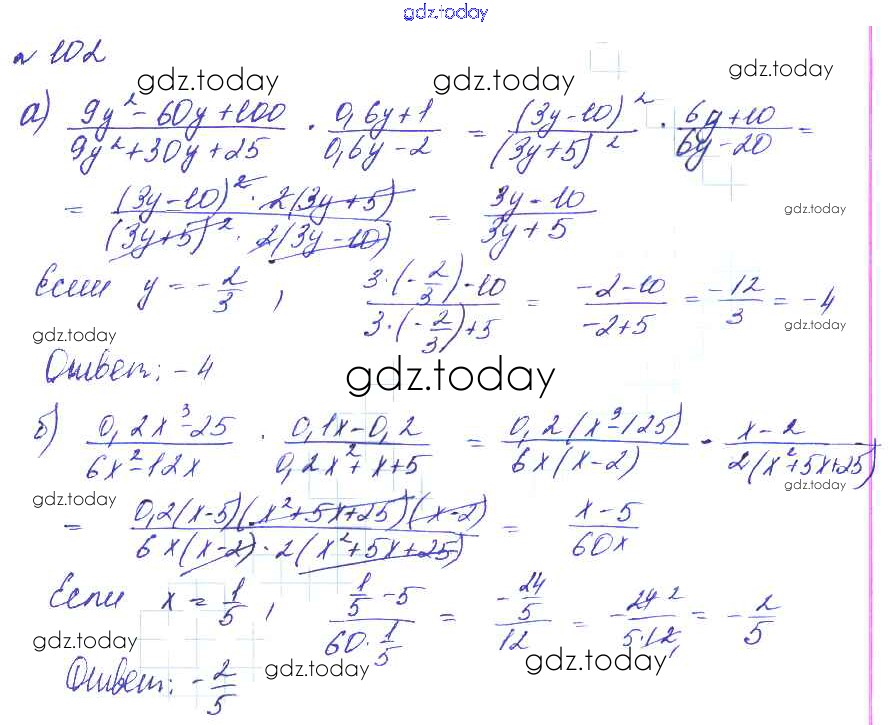 gdz.today
№ 102
gdz.today gdz.today gdz.today
а) (9y² - 60y + 100)/(9y² + 30y + 25) · (0,6y + 1)/(0,6y - 2) = (3y - 10)²/(3y + 5)² · (6y + 10)/(6y - 20) =
= ((3y - 10)² · 2(3y + 5))/((3y + 5)² · 2(3y - 10)) = (3y - 10)/(3y + 5)
gdz.today
Если y = -2/3, (3·(-2/3) - 10)/(3·(-2/3) + 5) = (-2 - 10)/(-2 + 5) = -12/3 = -4
gdz.today gdz.today
Ответ: -4
gdz.today
б) (0,2x³ - 25)/(6x² - 12x) · (0,1x - 0,2)/(0,2x² + x + 5) = (0,2(x³ - 125))/(6x(x - 2)) · (x - 2)/(2(x² + 5x + 25))
gdz.today gdz.today
= (0,2(x - 5)(x² + 5x + 25)(x - 2))/(6x(x - 2) · 2(x² + 5x + 25)) = (x - 5)/(60x)
Если x = 1/5, (1/5 - 5)/(60·1/5) = (-24/5)/12 = -(24 2)/(5·12) = -2/5
gdz.today gdz.today
Ответ: -2/5
gdz.today gdz.today